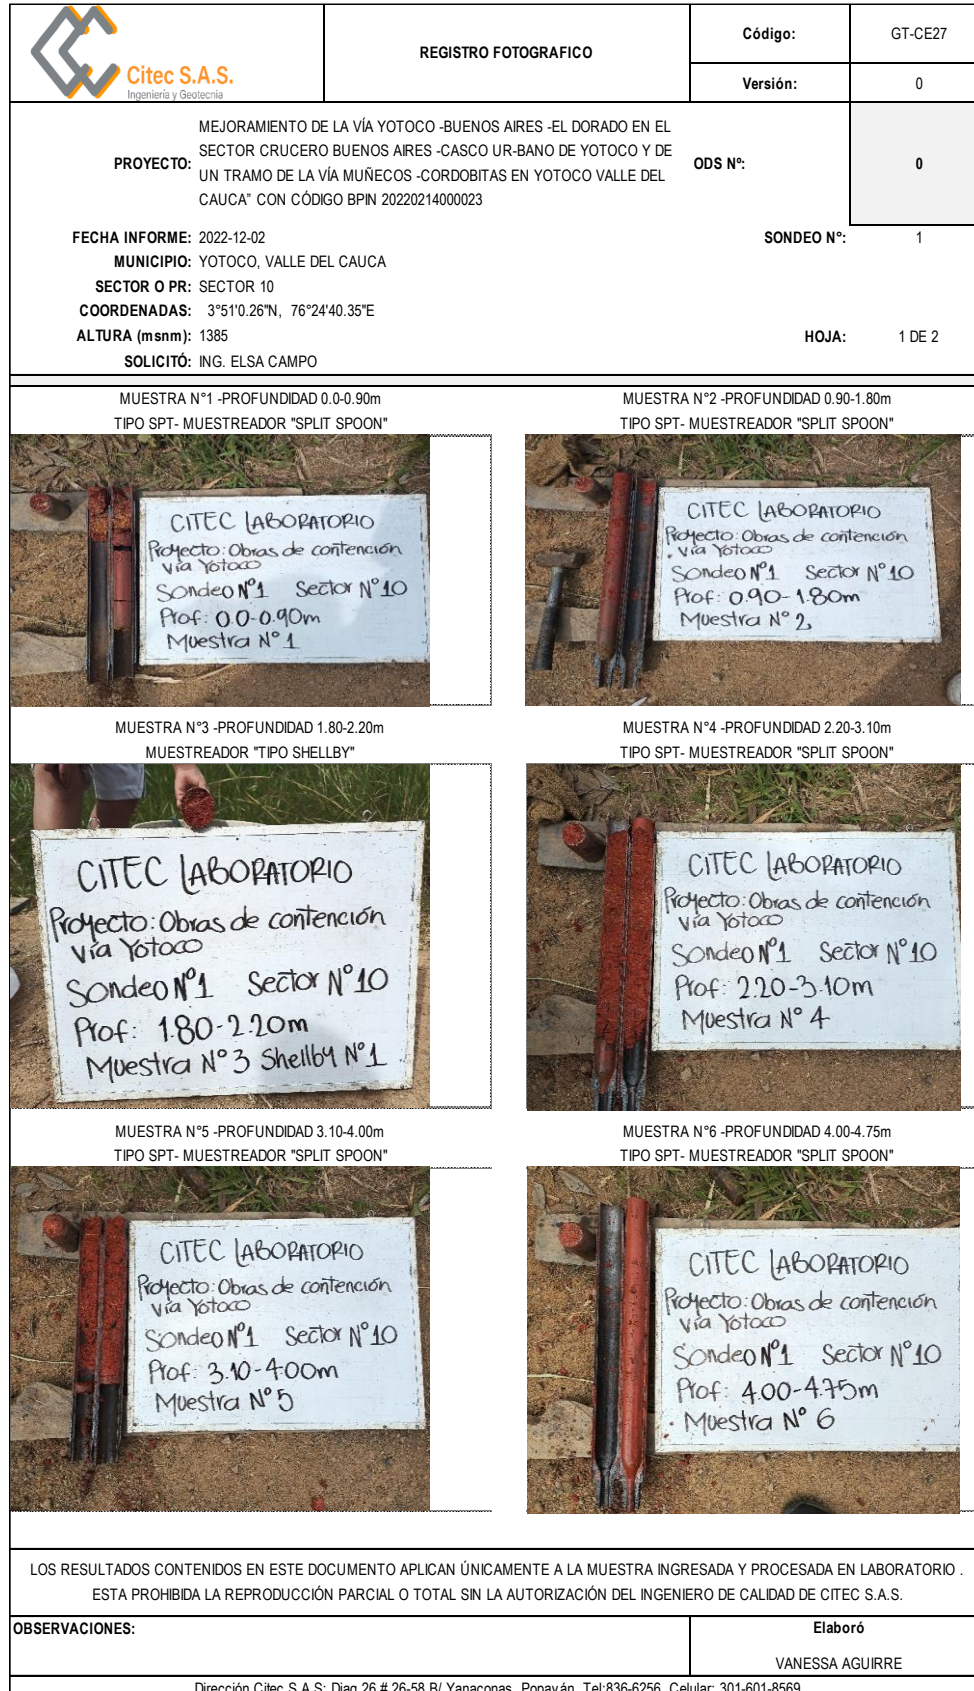 Citec S.A.S.
Ingeniería y Geotecnia
REGISTRO FOTOGRAFICO
Código:
GT-CE27
Versión:
0
PROYECTO:
MEJORAMIENTO DE LA VÍA YOTOCO -BUENOS AIRES -EL DORADO EN EL
SECTOR CRUCERO BUENOS AIRES -CASCO UR-BANO DE YOTOCO Y DE
UN TRAMO DE LA VÍA MUÑECOS -CORDOBITAS EN YOTOCO VALLE DEL
CAUCA" CON CÓDIGO BPIN 20220214000023
ODS Nº:
0
FECHA INFORME: 2022-12-02
SONDEO N°: 1
MUNICIPIO: YOTOCO, VALLE DEL CAUCA
SECTOR O PR: SECTOR 10
COORDENADAS: 3°51'0.26"N, 76°24'40.35"E
ALTURA (msnm): 1385
HOJA: 1 DE 2
SOLICITÓ: ING. ELSA CAMPO
MUESTRA N°1 -PROFUNDIDAD 0.0-0.90m
TIPO SPT- MUESTREADOR "SPLIT SPOON"
CITEC LABORATORIO
Proyecto: Obras de contención
Vía Yotoco
Sondeo N°1 Sector N°10
Prof: 0.0-0.90m
Muestra N° 1
MUESTRA N°2 -PROFUNDIDAD 0.90-1.80m
TIPO SPT- MUESTREADOR "SPLIT SPOON"
CITEC LABORATORIO
Proyecto: Obras de contención
Vía Yotoco
Sondeo N°1 Sector N°10
Prof: 0.90-1.80m
Muestra N° 2
MUESTRA N°3 -PROFUNDIDAD 1.80-2.20m
MUESTREADOR "TIPO SHELLBY"
CITEC LABORATORIO
Proyecto: Obras de contención
Vía Yotoco
Sondeo N°1 Sector N°10
Prof: 1.80-2.20m
Muestra N° 3 Shellby N°1
MUESTRA N°4 -PROFUNDIDAD 2.20-3.10m
TIPO SPT- MUESTREADOR "SPLIT SPOON"
CITEC LABORATORIO
Proyecto: Obras de contención
Vía Yotoco
Sondeo N°1 Sector N°10
Prof: 2.20-3.10m
Muestra N° 4
MUESTRA N°5 -PROFUNDIDAD 3.10-4.00m
TIPO SPT- MUESTREADOR "SPLIT SPOON"
CITEC LABORATORIO
Proyecto: Obras de contención
Vía Yotoco
Sondeo N°1 Sector N°10
Prof: 3.10-4.00m
Muestra N° 5
MUESTRA N°6 -PROFUNDIDAD 4.00-4.75m
TIPO SPT- MUESTREADOR "SPLIT SPOON"
CITEC LABORATORIO
Proyecto: Obras de contención
Vía Yotoco
Sondeo N°1 Sector N°10
Prof: 4.00-4.75m
Muestra N° 6
LOS RESULTADOS CONTENIDOS EN ESTE DOCUMENTO APLICAN ÚNICAMENTE A LA MUESTRA INGRESADA Y PROCESADA EN LABORATORIO .
ESTA PROHIBIDA LA REPRODUCCIÓN PARCIAL O TOTAL SIN LA AUTORIZACIÓN DEL INGENIERO DE CALIDAD DE CITEC S.A.S.
OBSERVACIONES:
Elaboró
VANESSA AGUIRRE
Dirección Citec S.A.S: Diag 26 # 26-58 B/ Yanaconas, Popayán. Tel:836-6256, Celular: 301-601-8569